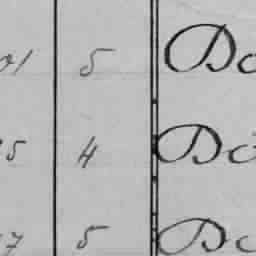 01 5 Do
5 4 Do
7 5 Do